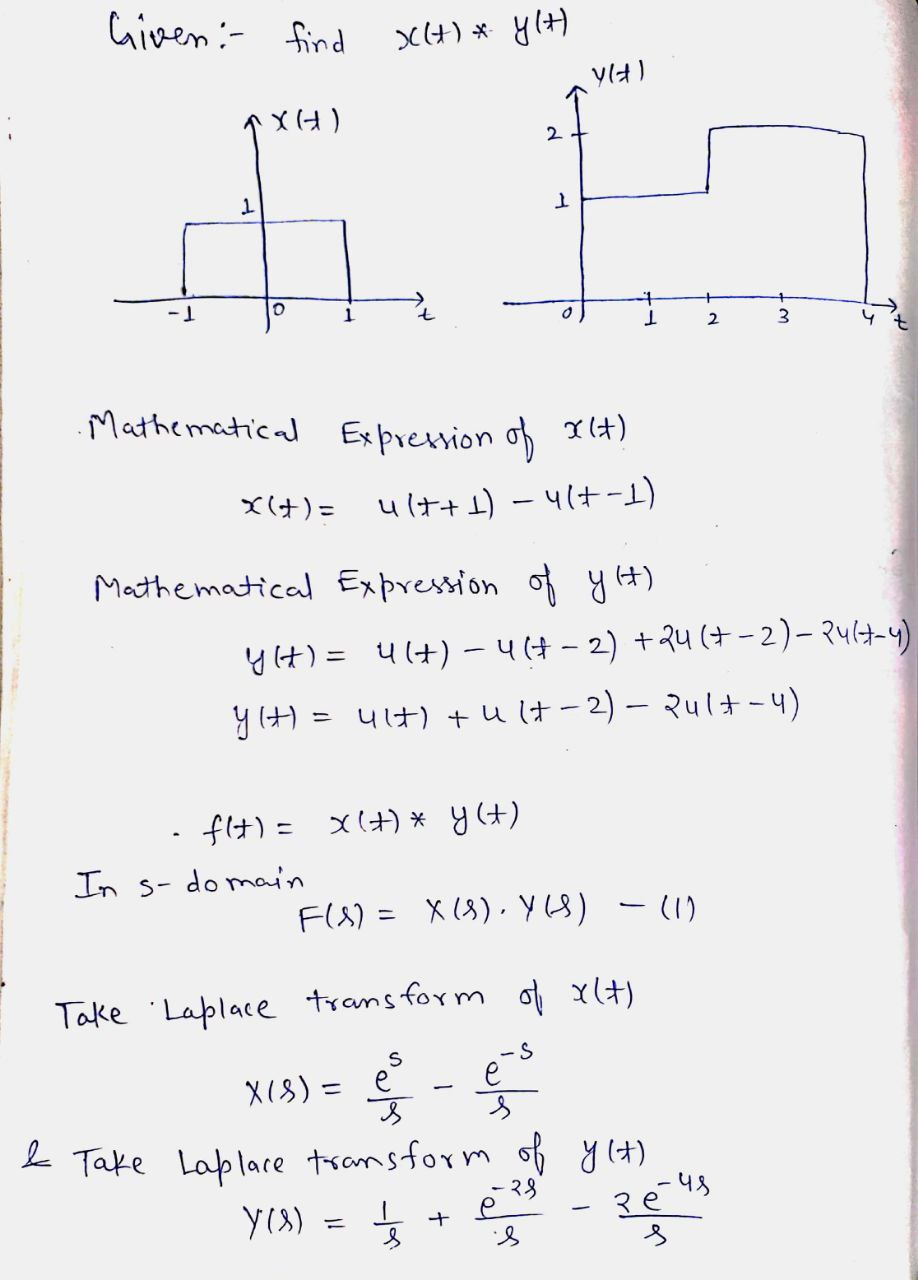 Given :- find x(t) * y(t)
x(t)
1
-1 0 1 t
y(t)
2
1
0 1 2 3 4 t
Mathematical Expression of x(t)
x(t) = u(t+1) - u(t-1)
Mathematical Expression of y(t)
y(t) = u(t) - u(t-2) + 2u(t-2) - 2u(t-4)
y(t) = u(t) + u(t-2) - 2u(t-4)
. f(t) = x(t) * y(t)
In s-domain
F(s) = X(s). Y(s) - (1)
Take Laplace transform of x(t)
X(s) = e^s/s - e^-s/s
& Take Laplace transform of y(t)
Y(s) = 1/s + e^-2s/s - 2e^-4s/s